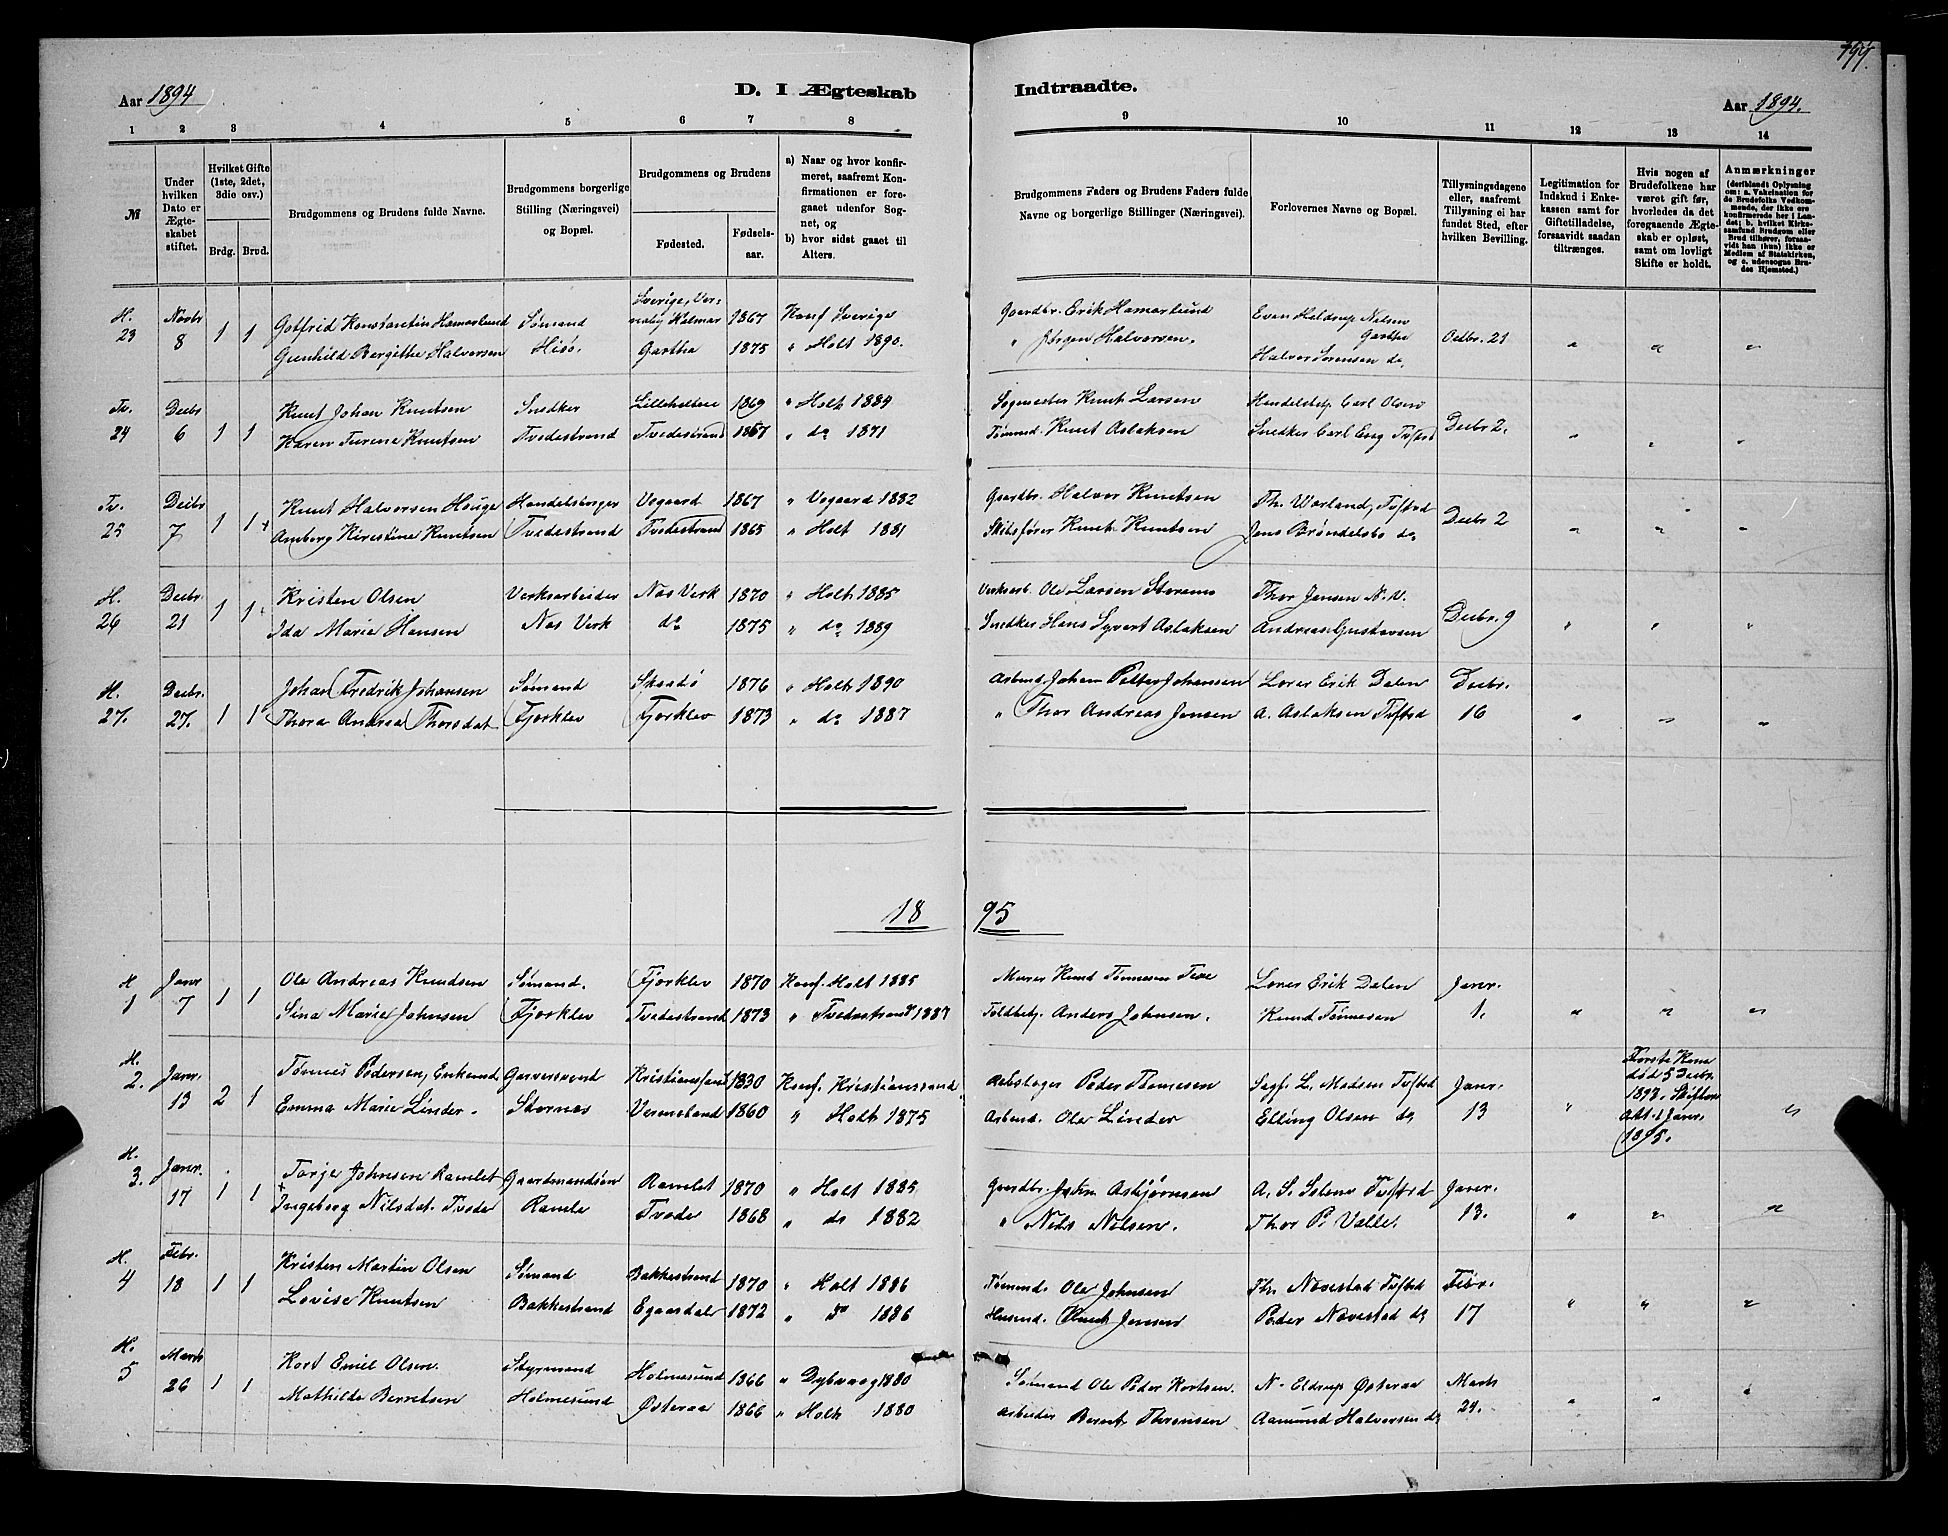 194.
Aar 1894
D. I Ægteskab
Indtraadte.
Aar 1894.
1 2 3 4 5 6 7 8
9 10 11 12 13 14
№
Under hvilken Dato er Ægteskabet stiftet.
Hvilket Gifte (1ste, 2det, 3die osv.)
Brdg. Brud.
Brudgommens og Brudens fulde Navne.
Brudgommens borgerlige Stilling (Næringsvei) og Bopæl.
Brudgommens og Brudens
Fødested.
Fødselsaar.
a) Naar og hvor konfirmeret, saafremt Konfirmationen er foregaaet udenfor Sognet, og
b) hvor sidst gaaet til Alters.
Brudgommens Faders og Brudens Faders fulde Navne og borgerlige Stillinger (Næringsvei).
Forlovernes Navne og Bopæl.
Tillysningsdagene eller, saafremt Tillysning ei har fundet Sted, efter hvilken Bevilling.
Legitimation for Indskud i Enkekassen samt for Giftetilladelse, forsaavidt saadan tiltrænges.
Hvis nogen af Brudefolkene har været gift før, hvorledes da det foregaaende Ægteskab er opløst, samt om lovligt Skifte er holdt.
Anmærkninger
(deriblandt Oplysning om: a. Vakcination for de Brudefolks Vedkommende, der ikke ere konfirmerede her i Landet; b. hvilket Kirkesamfund Brudgom eller Brud tilhører, forsaavidt han (hun) ikke er Medlem af Statskirken, og c. udensogns Brudes Hjemsted.)
H. 23 Novbr 8 1 1
Gotfrid Konstantin Hamarlund Sømand Sverige, Vernaby Kalmar 1867 Konf Sverige Gaardbr. Erik Hamarlund Even Heldrup Nelsen Gartha Octbr. 21 " " "
Gunhild Bergithe Halvorsen Hisø. Gartha 1875 " Holt 1890. " Jørgen Halvorsen. Halvor Sørensen do,
Tv. 24 Decbr 6 1 1
Knut Johan Knutsen Snedker Lilleholt 1869 " Holt 1884 Sagmester Knut Larsen Handelsbetj. Carl Olsen Decbr 2. " " "
Karen Turine Knutsen Tvedestrand Tvedestrand 1857 " do 1871 Tømmd. Knut Aslaksen Snedker Carl Eng Tvstrd
Tv. 25 Decbr 7 1 1
Knut Halvorsen Houge Handelsborger Vegaard 1867 " Vegaard 1882 Gaardbr. Halvor Knutsen Th. Worland, Tvstrd Decbr 2 " " "
Amborg Kirestine Knutsen Tvedestrand Tvedestrand 1865 " Holt 1881 Skibsfører Knut Knutsen Jens Brøndelsbo do
H. 26 Decbr. 21 1 1
Kristen Olsen Verksarbeider Nas Verk 1870 " Holt 1885 Verksarb. Ole Larsen Storemo Thor Jensen N. V. Decbr. 9 " " "
Ida Marie Hansen Nas Verk do 1875 " do 1889 Snedker Hans Syvert Aslaksen Andreas Gustavsen
H. 27. Decbr. 27. 1 1
Johan Fredrik Johansen Sømand Skaadø 1876 " Holt 1890 Arbmd. Johan Petter Johansen Lorer Erik Dalen Decbr. 16 " " "
Thora Andrea Thorsdat Fjorklev Fjorklev 1873 " do 1887 " Thor Andreas Jensen A. Aslaksen Tvstrd
18 95
H 1 Janr 7 1 1
Ole Andreas Knudsen Sømand. Fjorklev 1870 Konf. Holt 1885 Murer Knud Tønnesen Lorer Erik Dalen Janr. 1. " " "
Sina Marie Johnsen Fjorklev Tvedestrand 1873 " Tvedestrand 1887 Toldbetj. Anders Johnsen. Knud Tønnesen
H. 2. Janr. 13 2 1
Tønnes Pedersen, Enkemd Garversvend Kristianssand 1830 Konf. Kristianssand Peder Tønnesen Sagf. L. Madsen Tvstrd Janr. 13 " Første Kone død 5 Decbr. 1893. Skifteratt. 1 Janr. 1895. "
Emma Marie Linder. Stornæs Vermeland 1860 " Holt 1875 Arbmd. Ole Linder Elling Olsen do
H. 3. Janr. 17 1 1
Torje Johnsen Ramlet Gaardmandsøn Ramlet 1870 " Holt 1885 Gaardbr. John Asbjørnsen A. S. Solem Tvstrd Janr. 13. " " "
Ingeborg Nilsdat. Tvede Ramle Tvede 1868 " do 1882 " Nils Nilsen. Thor P. Valle.
H. 4 Febr. 18 1 1
Kristen Martin Olsen Sømand Bakkestrand 1870 " Holt 1886 Tømmd. Ole Johnsen Th. Navestad Tvstrd Febr. 17 " " "
Lovise Knutsen Bakkestrand Egaasdal 1872 " do 1886 Husmd. Knut Jensen Peder Navestad do
H. 5 Marts 26 1 1
Kort Emil Olsen. Styrmand Holmesund 1866 " Dybvaag 1880 Sømand Ole Peder Kortsen. N. Eldrup Østeraa Marts 24. " " "
Mathilde Berntsen Holmesund Østeraa 1866 " Holt 1880 Arbeider Bernt Terensen Aamund Halvorsen do